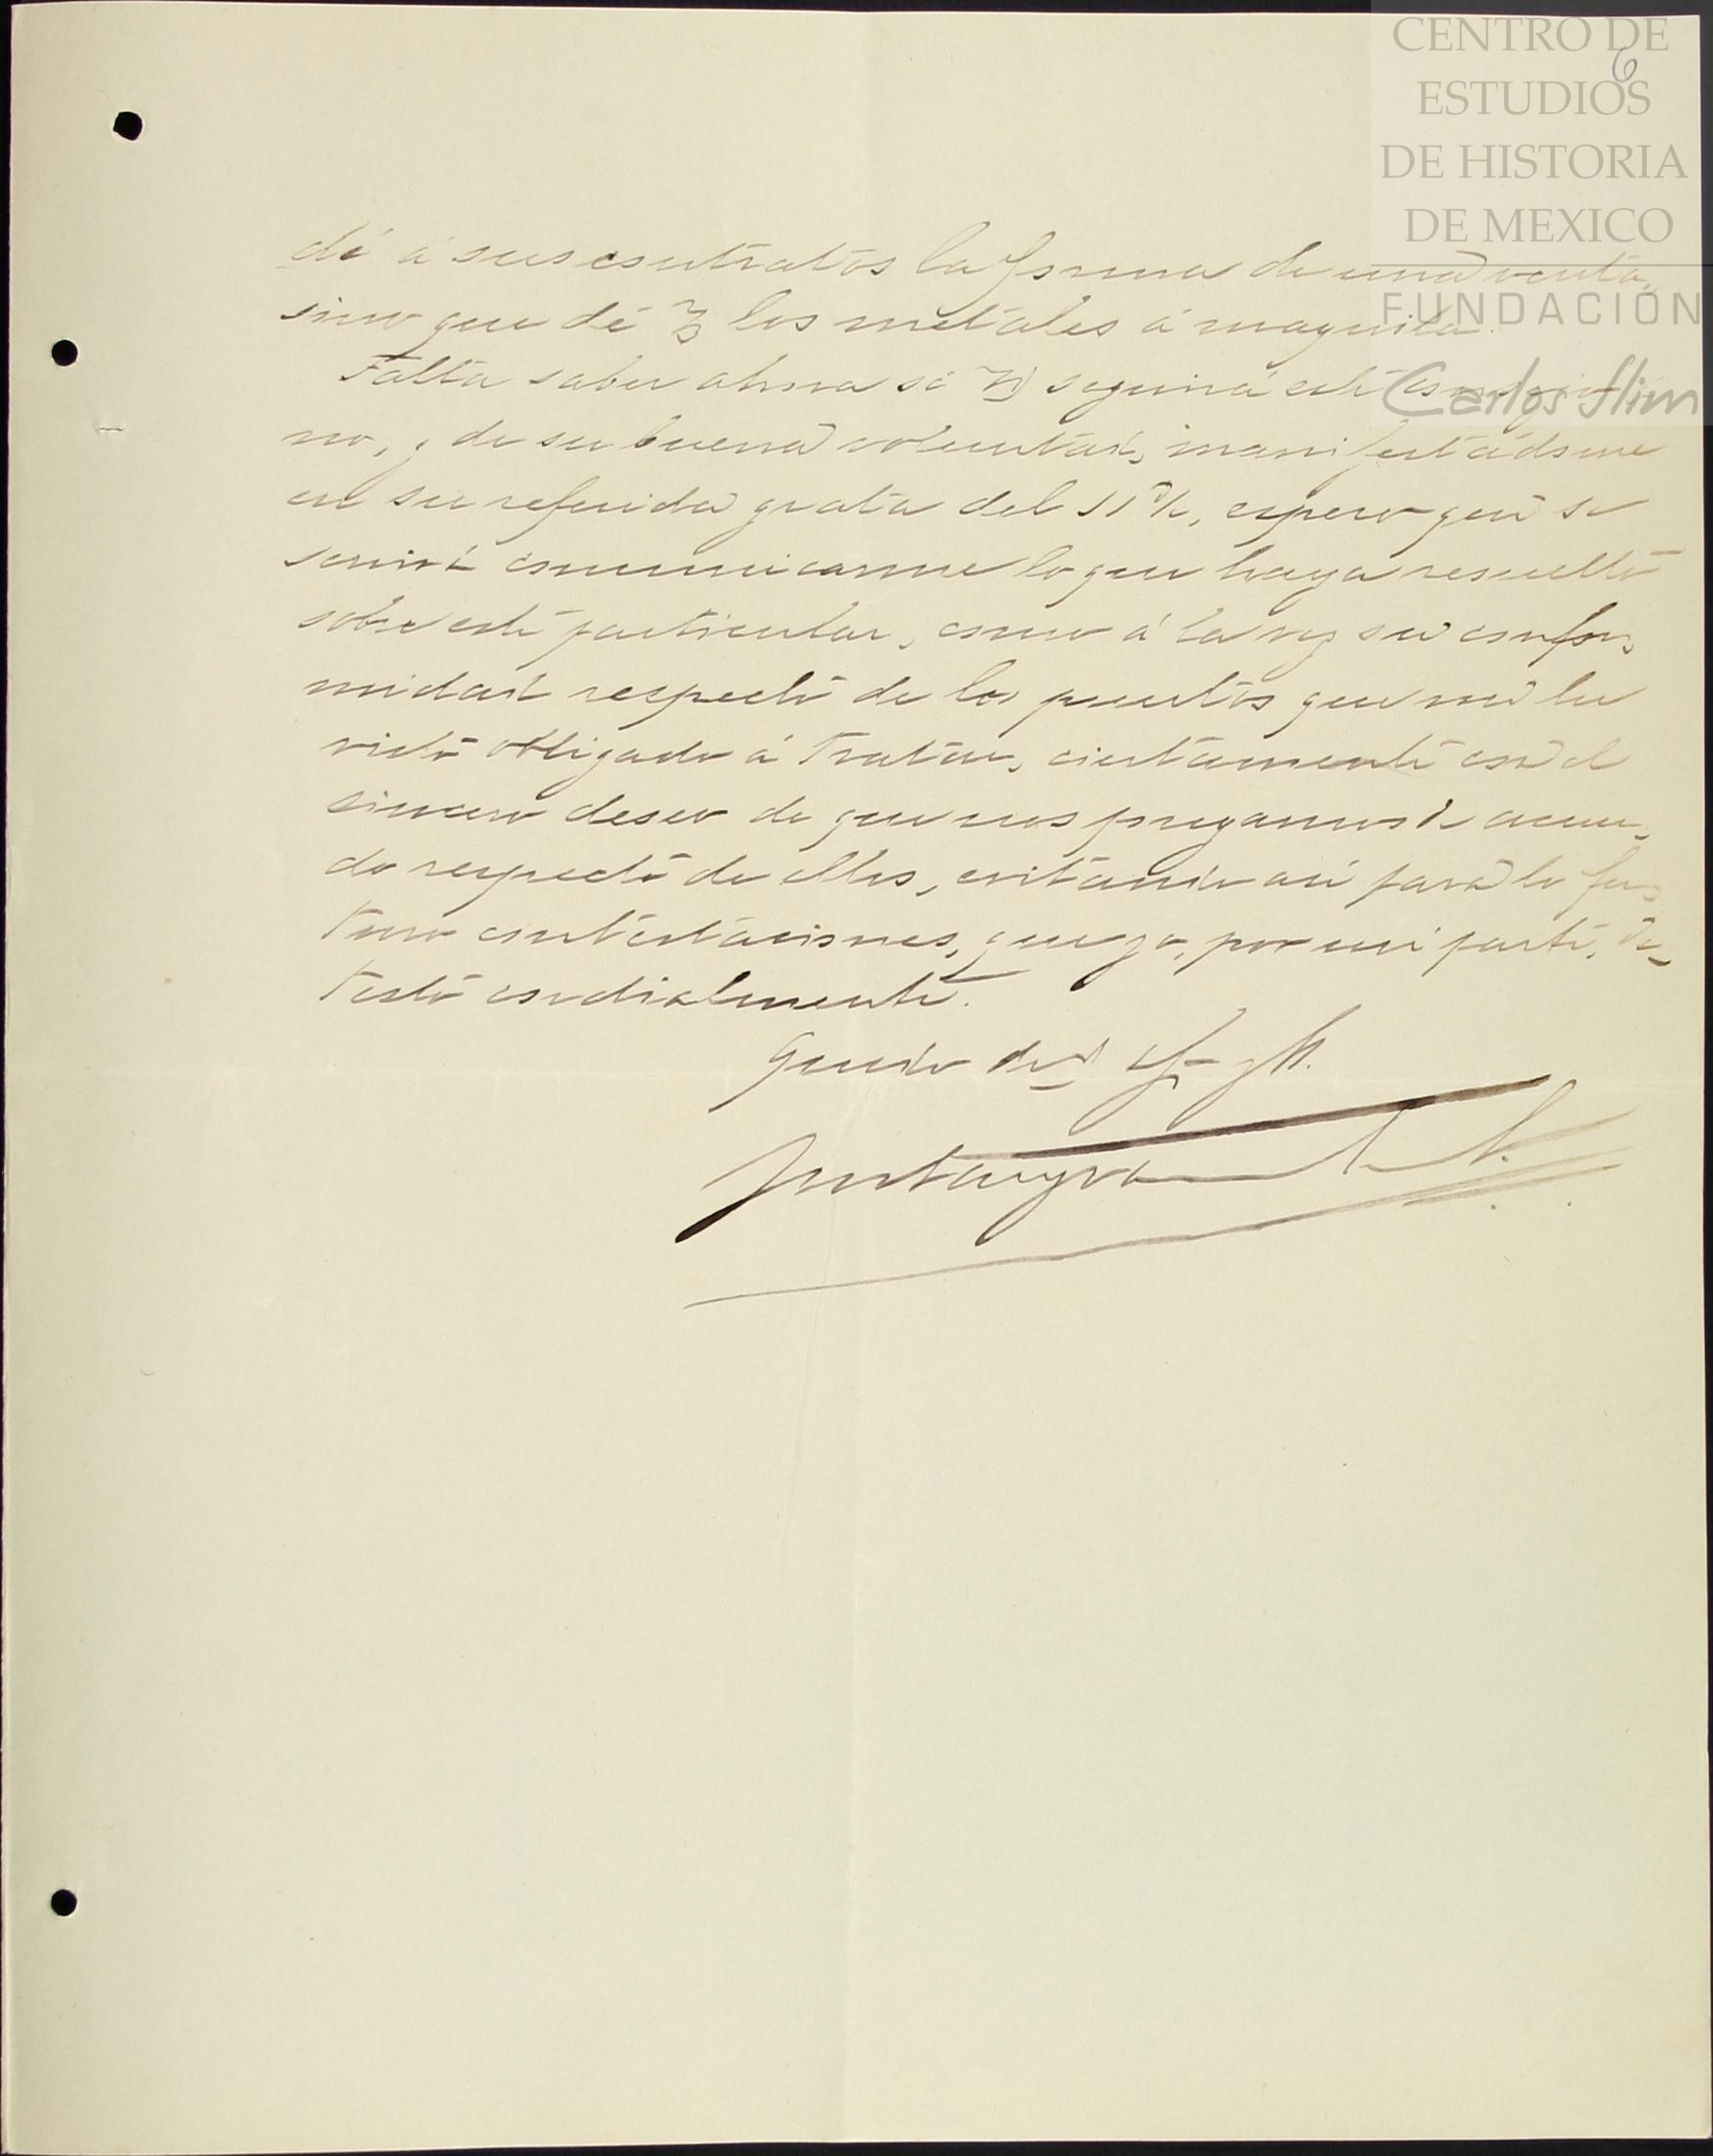 CENTRO DE
6
ESTUDIOS
DE HISTORIA
DE MEXICO
FUNDACIÓN
Carlos Slim
dé á sus contratos la forma de una venta,
sino que dé los metales á maquila.
Falta saber ahora si seguirá este
no, y de su buena voluntad, manifestádome
en su referida grata del 11, espero que se
servirá comunicarme lo que haya resuelto
sobre este particular, como á la vez su confor-
midad respecto de los puntos que me he
visto obligado á tratar, ciertamente con el
sincero deseo de que nos pongamos de acuer-
do respecto de ellos, evitando así para lo fu-
turo contestaciones, que yo, por mi parte, de-
testo cordialmente.
Quedo de